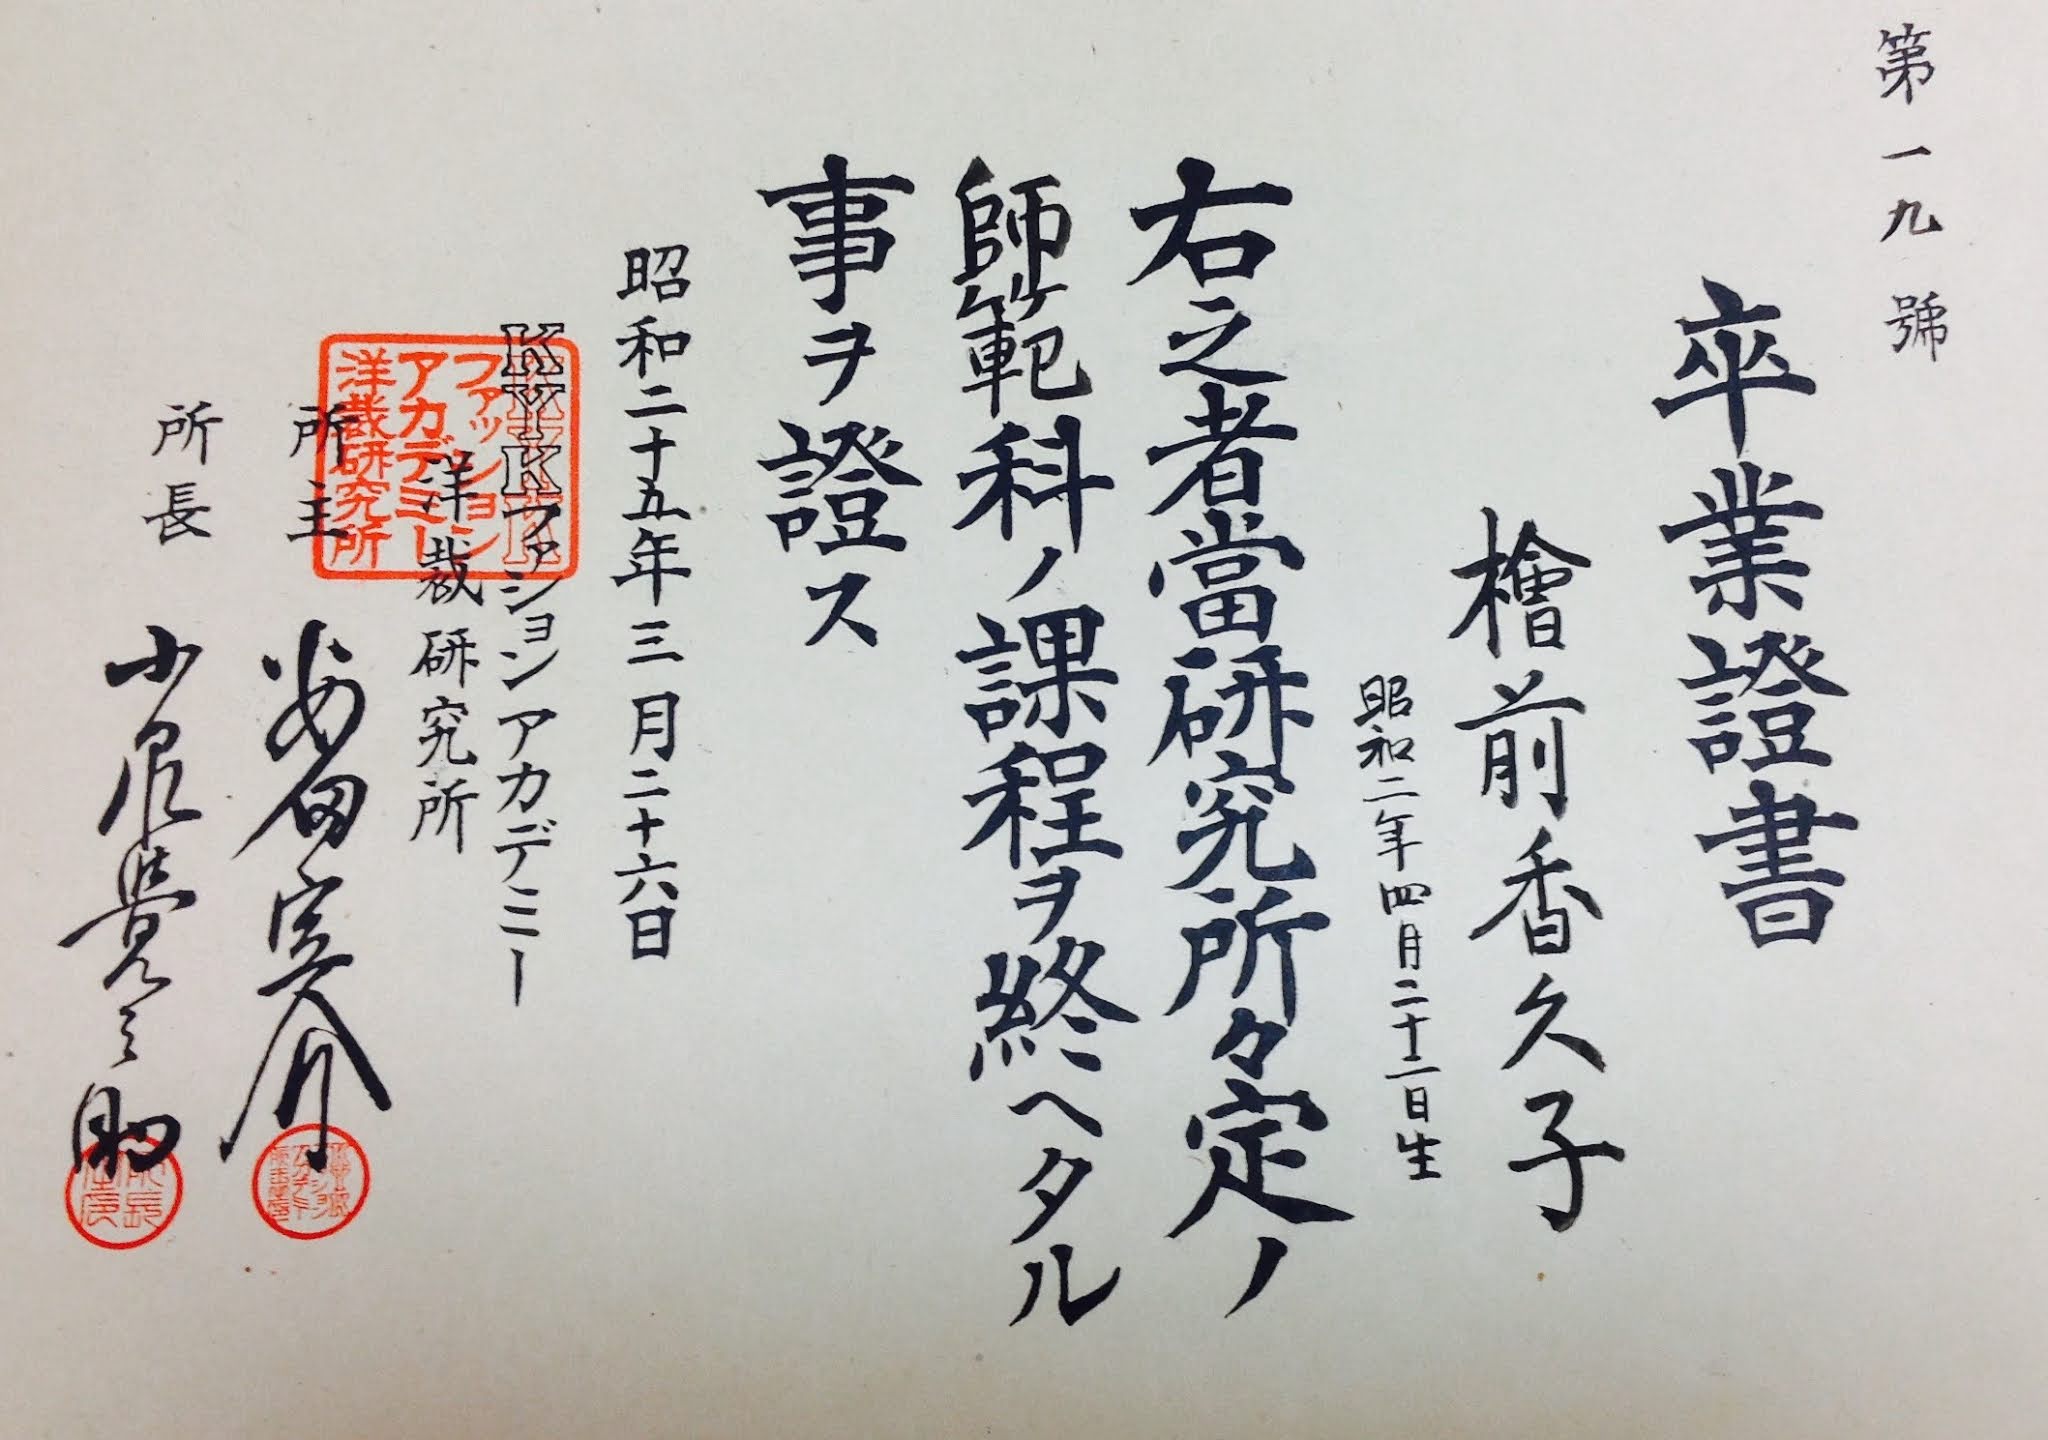 第一九號
卒業證書
檜前香久子
昭和二年四月二十二日生
右之者當研究所々定ノ
師範科ノ課程ヲ終ヘタル
事ヲ證ス
昭和二十五年三月二十六日
KYKファションアカデミー
洋裁研究所
所主
所長 小泉覺之助
KYK
ファッション
アカデミー
洋裁研究所